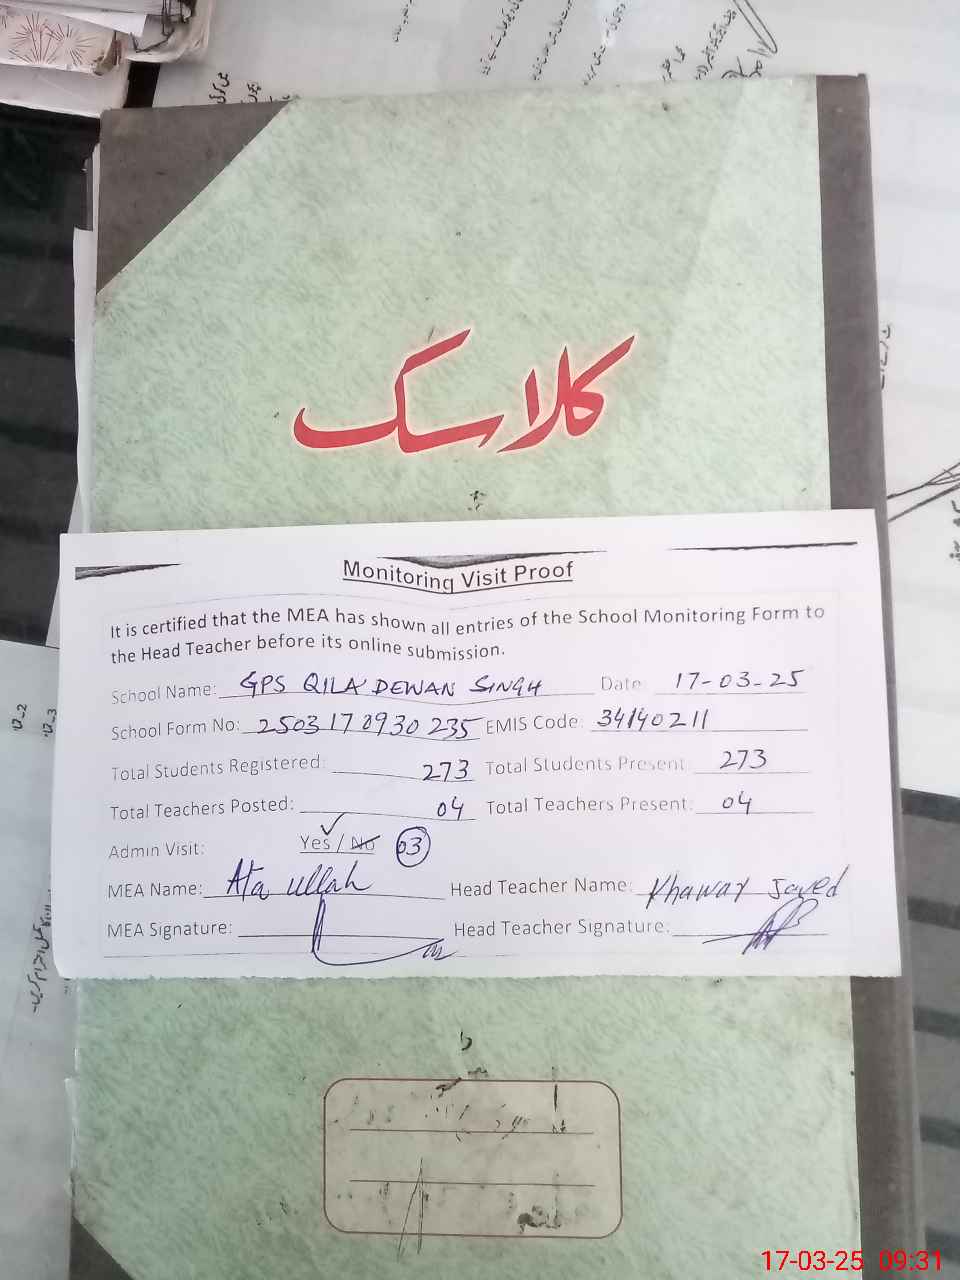 کلاسک
Monitoring Visit Proof
It is certified that the MEA has shown all entries of the School Monitoring Form to
the Head Teacher before its online submission.
School Name: GPS QILA DEWAN SINGH Date: 17-03-25
School Form No: 2503170930235 EMIS Code: 34140211
Total Students Registered: 273 Total Students Present: 273
Total Teachers Posted: 04 Total Teachers Present: 04
Admin Visit: Yes / No 03
MEA Name: Ata ullah Head Teacher Name: Khawar Javed
MEA Signature: Head Teacher Signature:
17-03-25 09:31